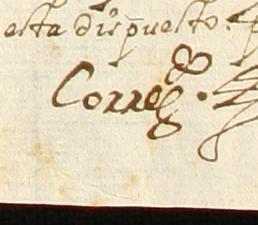 esta dispuesto.
Correg.